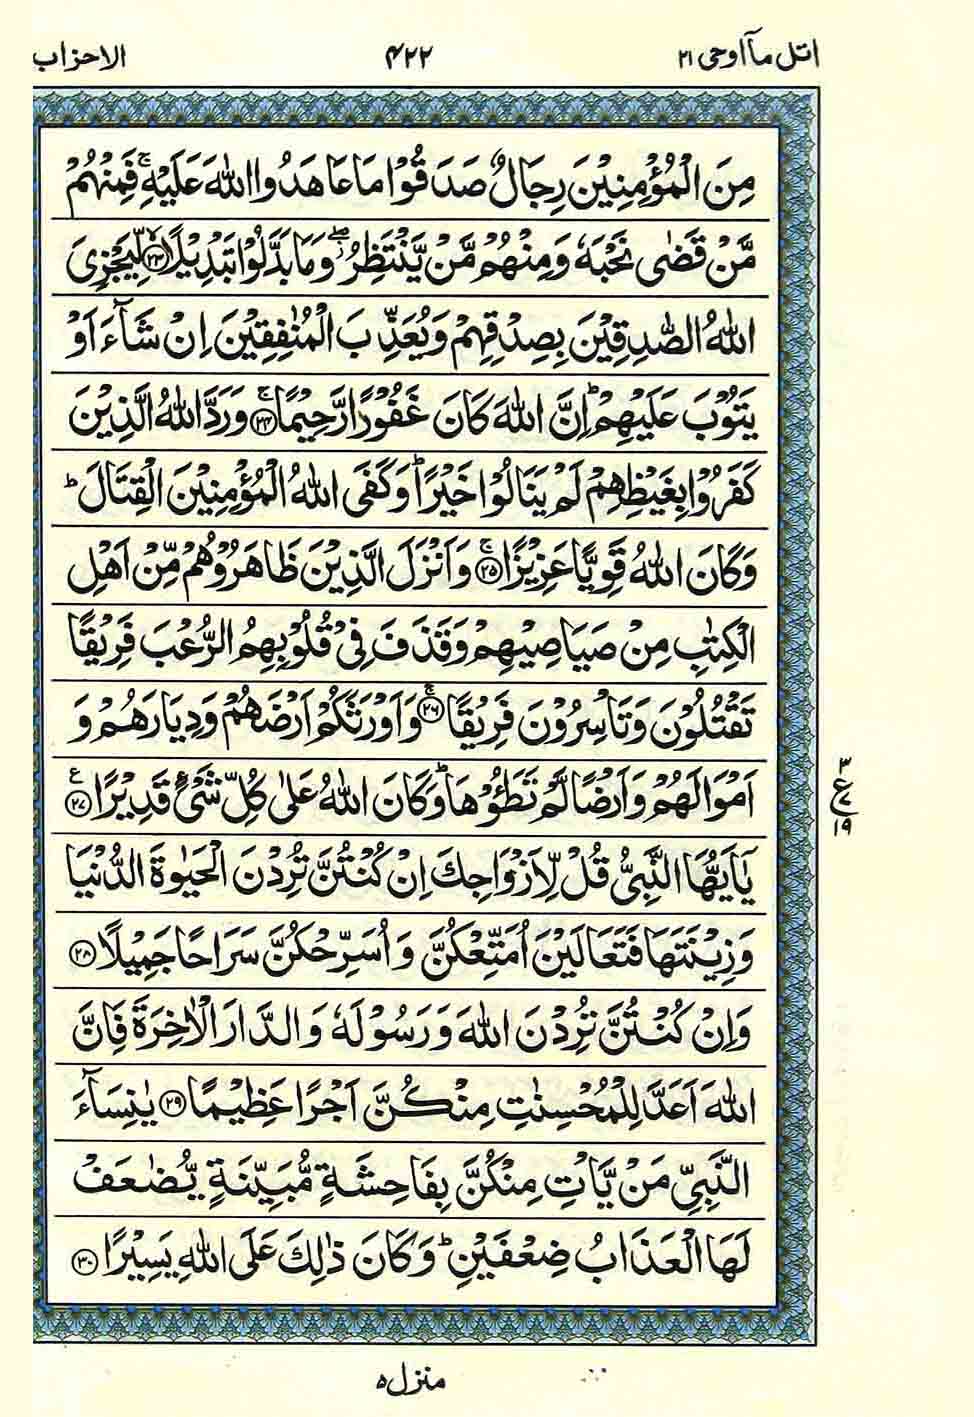 اتل مآ اوحی ۲۱
۴۲۲
الاحزاب
مِنَ الْمُؤْمِنِیْنَ رِجَالٌ صَدَقُوْا مَا عَاهَدُوا اللّٰهَ عَلَیْهِ ۚ فَمِنْهُمْ
مَّنْ قَضٰی نَحْبَهٗ وَمِنْهُمْ مَّنْ یَّنْتَظِرُ ۖ وَمَا بَدَّلُوْا تَبْدِیْلًا ۙ﴿۲۳﴾ لِّیَجْزِیَ
اللّٰهُ الصّٰدِقِیْنَ بِصِدْقِهِمْ وَیُعَذِّبَ الْمُنٰفِقِیْنَ اِنْ شَآءَ اَوْ
یَتُوْبَ عَلَیْهِمْ ؕ اِنَّ اللّٰهَ كَانَ غَفُوْرًا رَّحِیْمًا ۚ﴿۲۴﴾ وَرَدَّ اللّٰهُ الَّذِیْنَ
كَفَرُوْا بِغَیْظِهِمْ لَمْ یَنَالُوْا خَیْرًا ؕ وَكَفَی اللّٰهُ الْمُؤْمِنِیْنَ الْقِتَالَ ؕ
وَكَانَ اللّٰهُ قَوِیًّا عَزِیْزًا ۚ﴿۲۵﴾ وَاَنْزَلَ الَّذِیْنَ ظَاهَرُوْهُمْ مِّنْ اَهْلِ
الْكِتٰبِ مِنْ صَیَاصِیْهِمْ وَقَذَفَ فِیْ قُلُوْبِهِمُ الرُّعْبَ فَرِیْقًا
تَقْتُلُوْنَ وَتَاْسِرُوْنَ فَرِیْقًا ۚ﴿۲۶﴾ وَاَوْرَثَكُمْ اَرْضَهُمْ وَدِیَارَهُمْ وَ
اَمْوَالَهُمْ وَاَرْضًا لَّمْ تَطَـُٔوْهَا ؕ وَكَانَ اللّٰهُ عَلٰی كُلِّ شَیْءٍ قَدِیْرًا ﴿۲۷﴾ ع
۳
ع
۷
۱۹
یٰۤاَیُّهَا النَّبِیُّ قُلْ لِّاَزْوَاجِكَ اِنْ كُنْتُنَّ تُرِدْنَ الْحَیٰوةَ الدُّنْیَا
وَزِیْنَتَهَا فَتَعَالَیْنَ اُمَتِّعْكُنَّ وَاُسَرِّحْكُنَّ سَرَاحًا جَمِیْلًا ﴿۲۸﴾
وَاِنْ كُنْتُنَّ تُرِدْنَ اللّٰهَ وَرَسُوْلَهٗ وَالدَّارَ الْاٰخِرَةَ فَاِنَّ
اللّٰهَ اَعَدَّ لِلْمُحْسِنٰتِ مِنْكُنَّ اَجْرًا عَظِیْمًا ﴿۲۹﴾ یٰنِسَآءَ
النَّبِیِّ مَنْ یَّاْتِ مِنْكُنَّ بِفَاحِشَةٍ مُّبَیِّنَةٍ یُّضٰعَفْ
لَهَا الْعَذَابُ ضِعْفَیْنِ ؕ وَكَانَ ذٰلِكَ عَلَی اللّٰهِ یَسِیْرًا ﴿۳۰﴾
منزل ۵